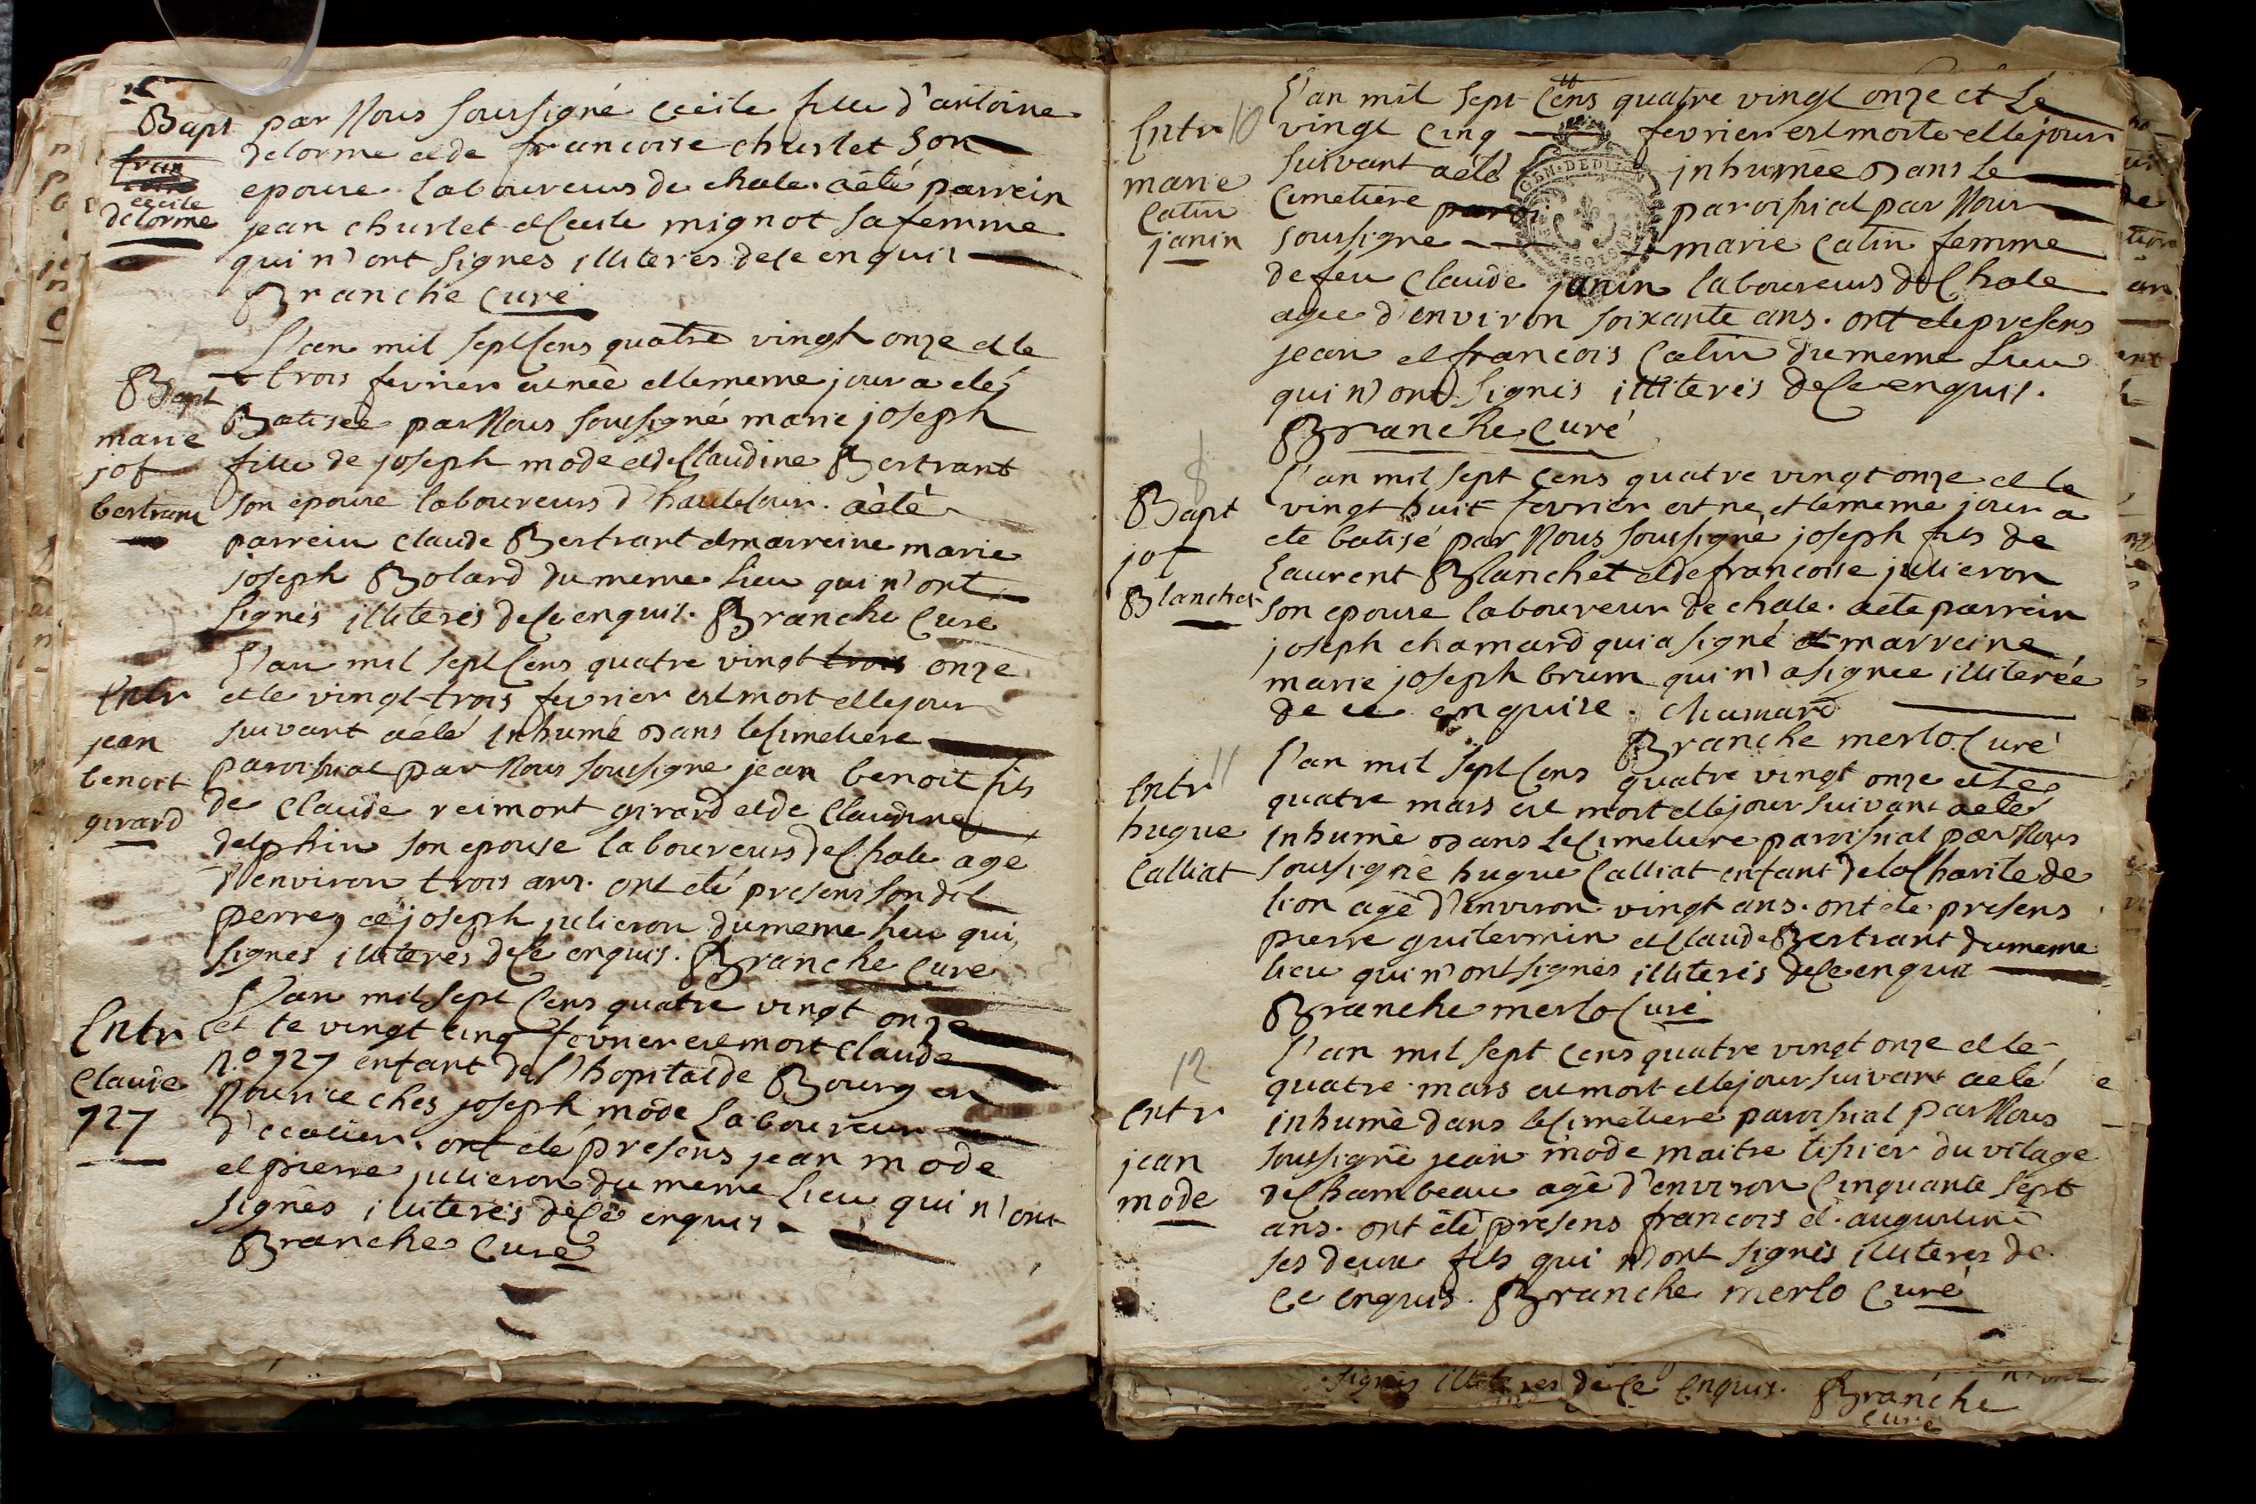 Bapt
fran
coise
cecile
delorme
par Nous soussigné cecile fille d'antoine
delorme et de francoise churlet son
epouse laboureurs de chale. a été parrein
jean churlet et cecile mignot sa femme
qui n'ont signes illiteres de ce enquis
Branche Curé
Bapt
marie
jos
bertrant
L'an mil sept Cens quatre vingt onze et le
trois fevrier est née et le meme jour a eté
Batisée par Nous soussigné marie joseph
fille de joseph mode et de Claudine Bertrant
son epouse laboureurs d'hautefour. a été
parrein claude Bertrant et marreine marie
joseph Bolard du meme lieu qui n'ont
signés illiterés de ce enquis. Branche Curé
Entr
jean
benoit
girard
L'an mil sept Cens quatre vingt trois onze
et le vingt trois fevrier est mort et le jour
suivant a été inhumé dans le Cimetiere
paroissial par Nous soussigné jean benoit fils
de Claude reimont girard et de Claudine
delphin son epouse laboureurs de Chale agé
d'environ trois ans. ont eté presens son dit
perre et joseph julieron du meme lieu qui
signes illiteres de ce enquis. Branche Curé
Entr
Claude
727
L'an mil sept Cens quatre vingt onze
et le vingt cinq fevrier est mort claude
n.o 727 enfant de l'hopital de Bourg en
Nourice ches joseph mode laboureur
d'ecalier. ont eté presens jean mode
et pierre julieron du meme lieu qui n'ont
signés illiterés de ce enquis
Branche Curé
Entr 10
marie
Catin
janin
L'an mil sept Cens quatre vingt onze et le
vingt Cinq fevrier est morte et le jour
suivant a été inhumée dans le
Cimetiere paroi paroissial par Nous
soussigné marie Catin femme
de feu Claude janin laboureurs de Chale
agee d'environ soixante ans. ont eté presens
jean et francois Catin du meme lieu
qui n'ont signés illiterés de ce enquis.
Branche Curé
8
Bapt
jos
Blanchet
L'an mil sept Cens quatre vingt onze et le
vingt huit fevrier est né et le meme jour a
eté batisé par Nous soussigné joseph fils de
Laurent Blanchet et de francoise julieron
son epouse laboureur de chale. a été parrein
joseph chamard qui a signé et marreine
marie joseph brun qui n'a signee illiterée
de ce enquise. Chamard
Branche merlo Curé
Entr 11
hugue
Calliat
L'an mil sept Cens quatre vingt onze et le
quatre mars est mort et le jour suivant a été
inhumé dans le Cimetiere paroissial par Nous
soussigné hugue Calliat enfant de la Charite de
lion agé d'environ vingt ans. ont eté presens
pierre guilermin et Claude Bertrant du meme
lieu qui n'ont signés illiterés de ce enquis
Branche merlo Curé
12
Entr
jean
mode
L'an mil sept Cens quatre vingt onze et le
quatre mars est mort et le jour suivant a été
inhumé dans le Cimetiere paroissial par Nous
soussigné jean mode maitre tissier du vilage
de Chambeau agé d'environ Cinquante sept
ans. ont eté presens francois et augustin
ses deux fils qui n'ont signés illiteres de
Ce enquis. Branche merlo Curé
signés illiteres de Ce Enquis. Branche
Curé